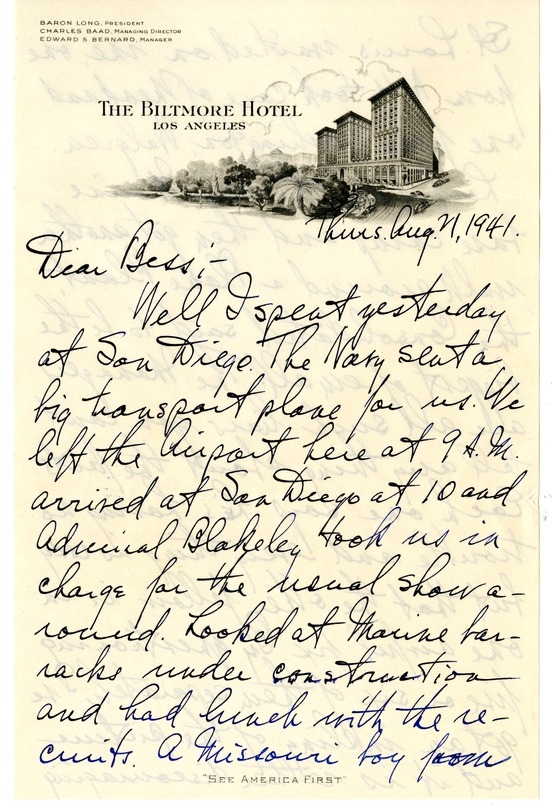 BARON LONG, PRESIDENT
CHARLES BAAD, MANAGING DIRECTOR
EDWARD S BERNARD, MANAGER
THE BILTMORE HOTEL
LOS ANGELES
Thurs. Aug. 21, 1941.
Dear Bess:-
Well I spent yesterday
at San Diego. The Navy sent a
big transport plane for us. We
left the Airport here at 9 A.M.
arrived at San Diego at 10 and
Admiral Blakeley took us in
charge for the usual show a-
round. Looked at Marine bar-
racks under construction
and had lunch with the re-
cruits. A Missouri boy from
"SEE AMERICA FIRST"